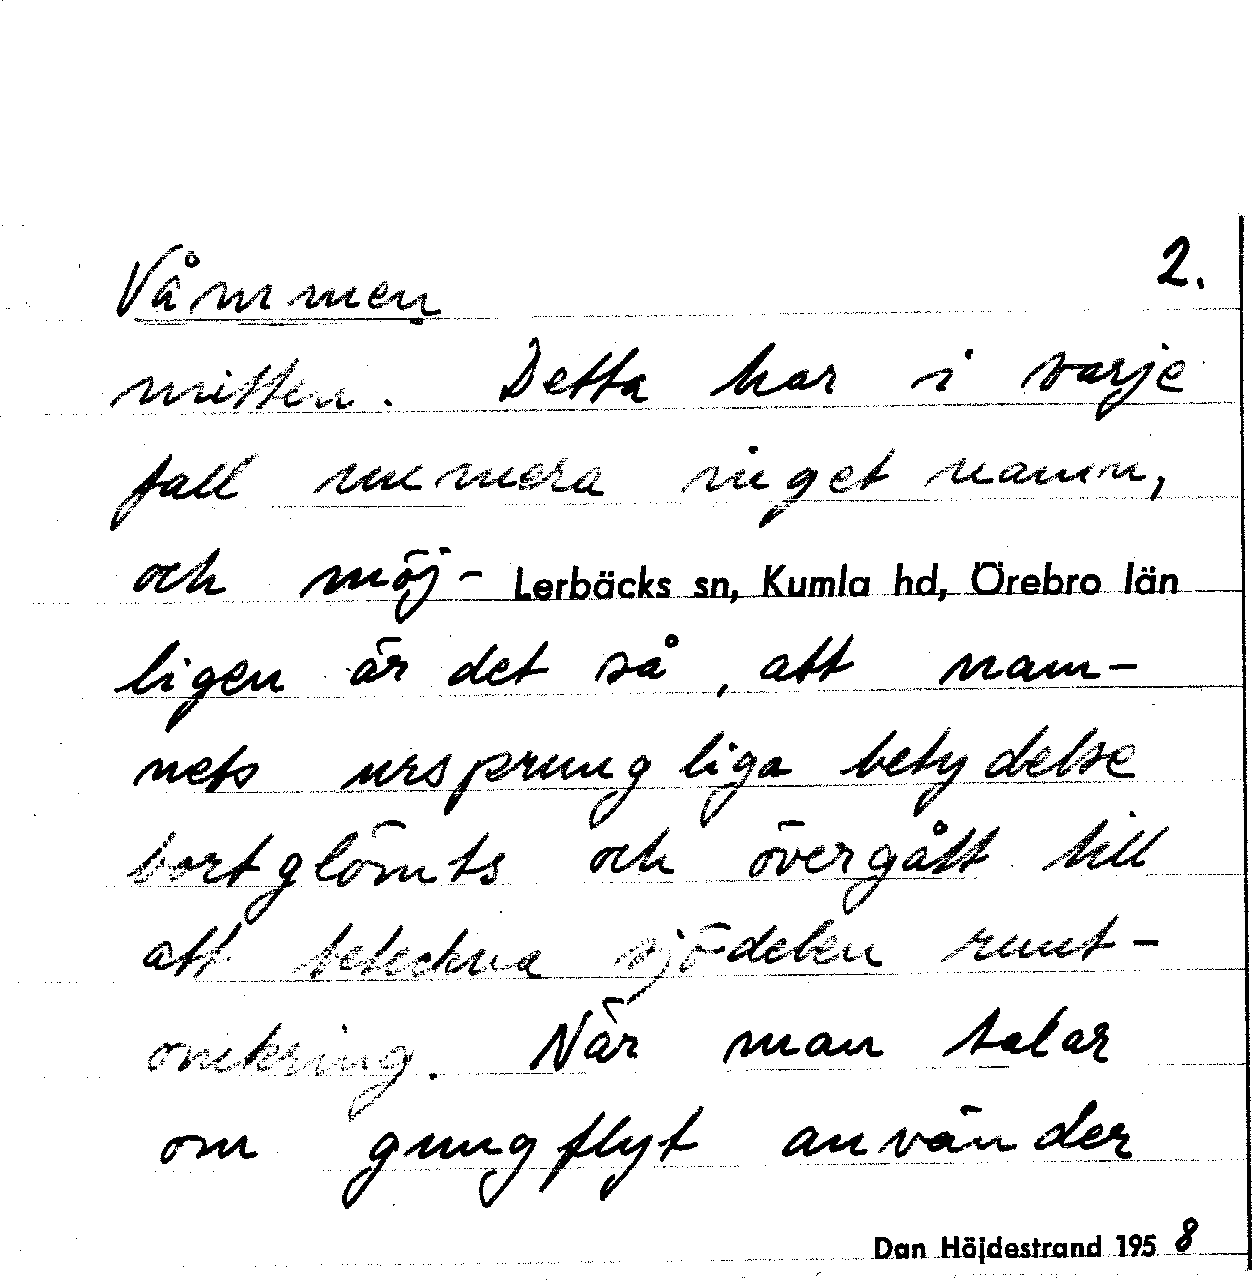 Våmmen 2.
mitten. Detta har i varje
fall numera inget namn,
och möj- Lerbäcks sn, Kumla hd, Örebro län
ligen är det så, att nam-
nets ursprungliga betydelse
bortglömts och övergått till
att beteckna sjödelen runt-
omkring. När man talar
om gungflyt använder
Dan Höjdestrand 1958